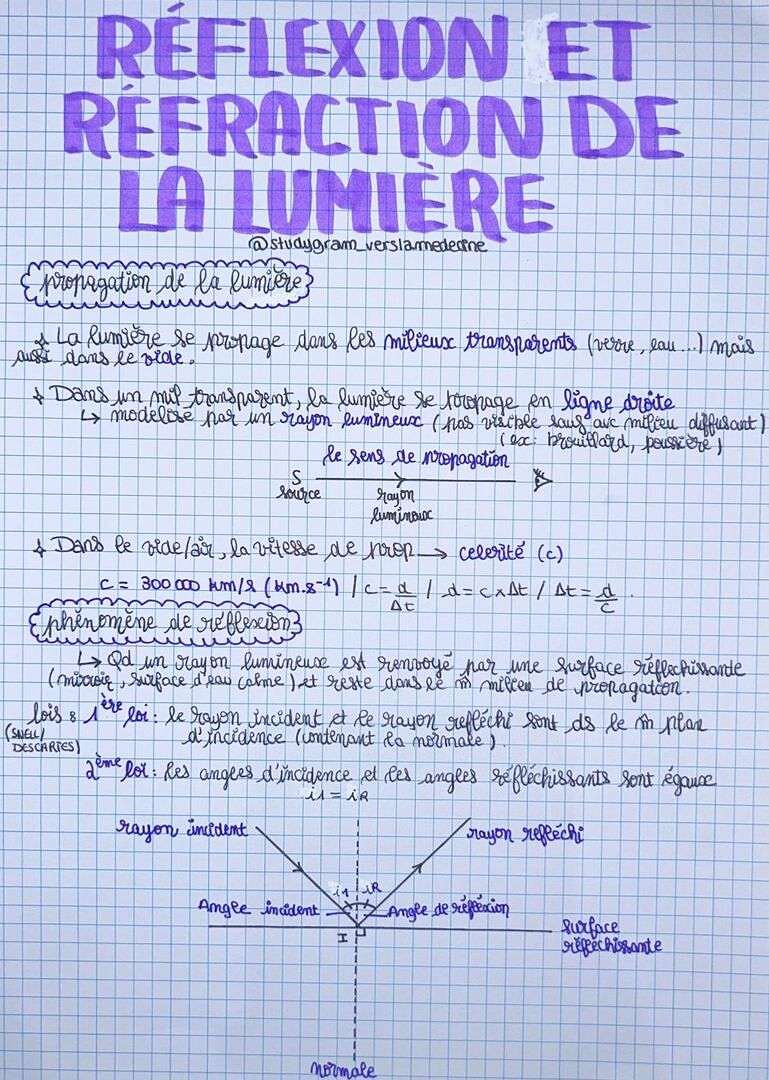 RÉFLEXION ET
RÉFRACTION DE
LA LUMIÈRE
@studygram_verslamedecine
propagation de la lumière
La lumière se propage dans les milieux transparents (verre, eau...) mais
aussi dans le vide.
Dans un mil transparent, la lumière se propage en ligne droite
↳ modélisé par un rayon lumineux (pas visible sauf avc milieu diffusant)
(ex: brouillard, poussière)
le sens de propagation
S
source
rayon
lumineux
Dans le vide/air, la vitesse de prop → celerité (c)
c = 300 000 km/s (km.s⁻¹) / c = d/Δt / d = c x Δt / Δt = d/c .
phénomène de réflexion
↳ Qd un rayon lumineux est renvoyé par une surface réflechissante
(miroir, surface d'eau calme) et reste dans le m̂ milieu de propagation.
lois : 1ère loi : le rayon incident et le rayon refléchi sont ds le m̂ plan
(SNELL/
DESCARTES)
d'incidence (contenant la normale).
2ème loi : les angles d'incidence et les angles réfléchissants sont égaux
i1 = iR
rayon incident
rayon refléchi
i1 iR
Angle incident
Angle de réfléxion
I
surface
réfléchissante
normale